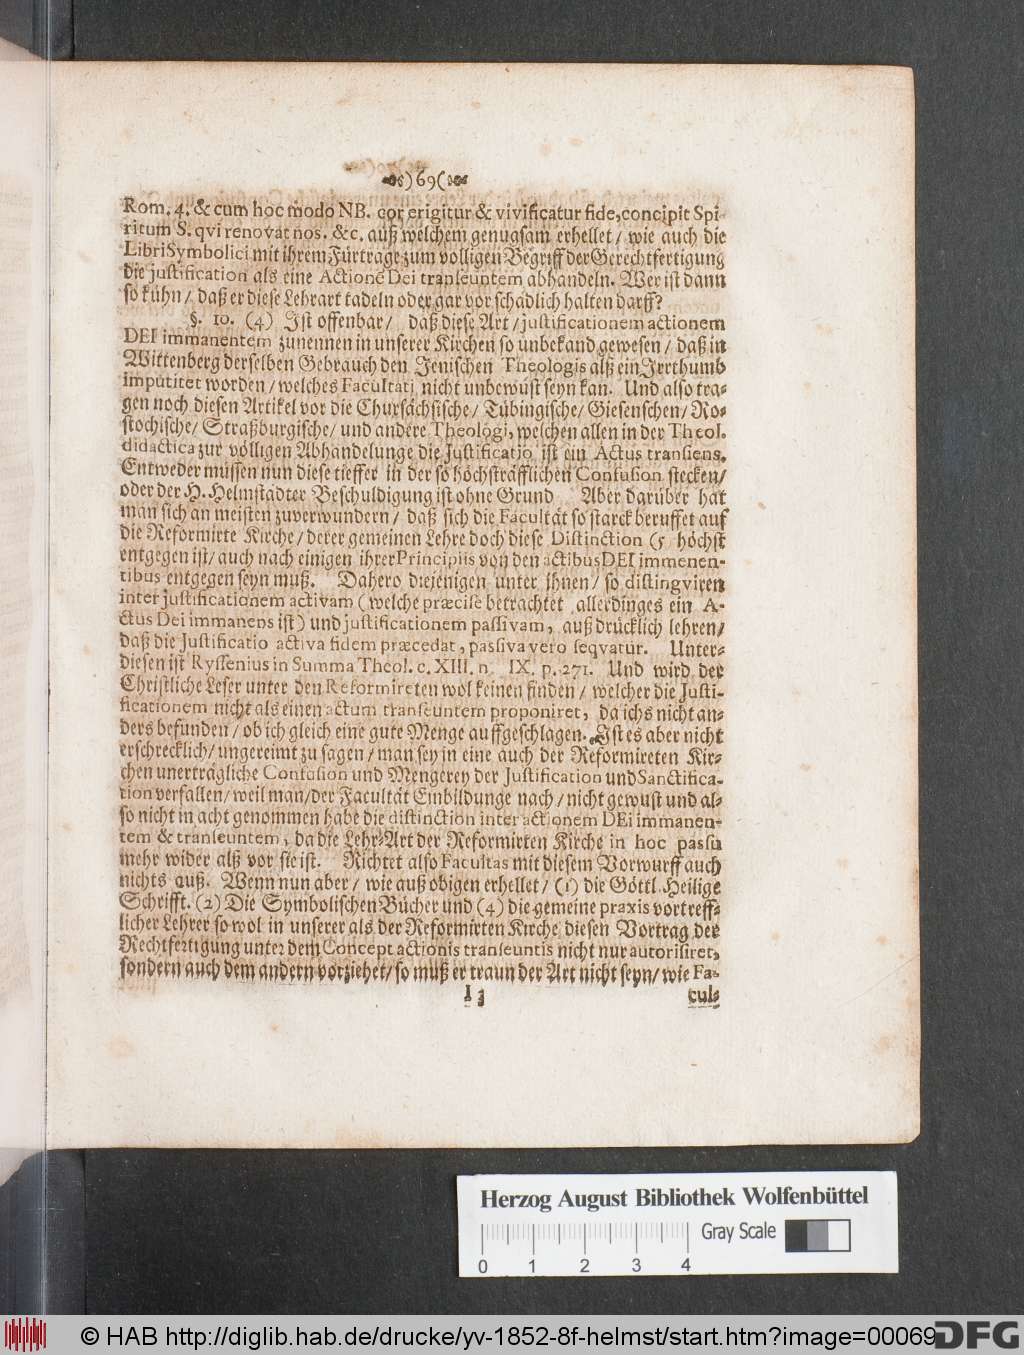 )69(
Rom. 4. & cum hoc modo NB. cor erigitur & vivificatur fide, concipit Spi-
ritum S. qvi renovat nos. &c. auß welchem genugsam erhellet / wie auch die
Libri Symbolici mit ihrem Fürtrage zum völligen Begriff der Gerechtfertigung
die justification als eine Actionẽ Dei transeuntem abhandeln. Wer ist dann
so kühn / daß er diese Lehrart tadeln oder gar vor schädlich halten darff?
§. 10. (4) Ist offenbar / daß diese Art / justificationem actionem
DEI immanentem zunennen in unserer Kirchen so unbekand gewesen / daß in
Wittenberg derselben Gebrauch den Jenischen Theologis alß ein Irrthumb
imputitet worden / welches Facultati nicht unbewust seyn kan. Und also tra-
gen noch diesen Artikel vor die Chursächsische / Tübingische / Giesenschen / Ro-
stochische / Straßburgische / und andere Theologi, welchen allen in der Theol.
didactica zur völligen Abhandelunge die Justificatio ist ein Actus transiens.
Entweder müssen nun diese tieffer in der so höchsträfflichen Confusion stecken /
oder der H. Helmstädter Beschuldigung ist ohne Grund Aber darüber hat
man sich an meisten zuverwundern / daß sich die Facultät so starck beruffet auf
die Reformirte Kirche / derer gemeinen Lehre doch diese Distinction (5 höchst
entgegen ist / auch nach einigen ihrer Principiis von den actibus DEI immenen-
tibus entgegen seyn muß. Dahero diejenigen unter ihnen / so distingviren
inter justificationem activam (welche præcise betrachtet allerdinges ein A-
ctus Dei immanens ist) und justificationem passivam, auß drücklich lehren /
daß die Justificatio activa fidem præcedat, passiva vero seqvatur. Unter-
diesen ist Ryssenius in Summa Theol. c. XIII. n. IX. p. 271. Und wird der
Christliche Leser unter den Reformireten wol keinen finden / welcher die Justi-
ficationem nicht als einen actum transeuntem proponiret, da ichs nicht an-
ders befunden / ob ich gleich eine gute Menge auffgeschlagen. Ist es aber nicht
erschrecklich / ungereimt zu sagen / man sey in eine auch der Reformireten Kir-
chen unerträgliche Confusion und Mengerey der Justification und Sanctifica-
tion verfallen / weil man / der Facultät Einbildunge nach / nicht gewust und al-
so nicht in acht genommen habe die distinction inter actionem DEi immanen-
tem & transeuntem, da die Lehr-Art der Reformirten Kirche in hoc passu
mehr wider alß vor sie ist. Richtet also Facultas mit diesem Vorwurff auch
nichts auß. Wenn nun aber / wie auß obigen erhellet / (1) die Göttl. Heilige
Schrifft. (2) Die Symbolischen Bücher und (4) die gemeine praxis vortreff-
licher Lehrer so wol in unserer als der Reformirten Kirche diesen Vortrag der
Rechtfertigung unter dem Concept actionis transeuntis nicht nur autorisiret,
sondern auch dem andern vorziehet / so muß er traun der Art nicht seyn / wie Fa-
I 3 cul-
Herzog August Bibliothek Wolfenbüttel
Gray Scale
0 1 2 3 4
© HAB http://diglib.hab.de/drucke/yv-1852-8f-helmst/start.htm?image=00069
DFG